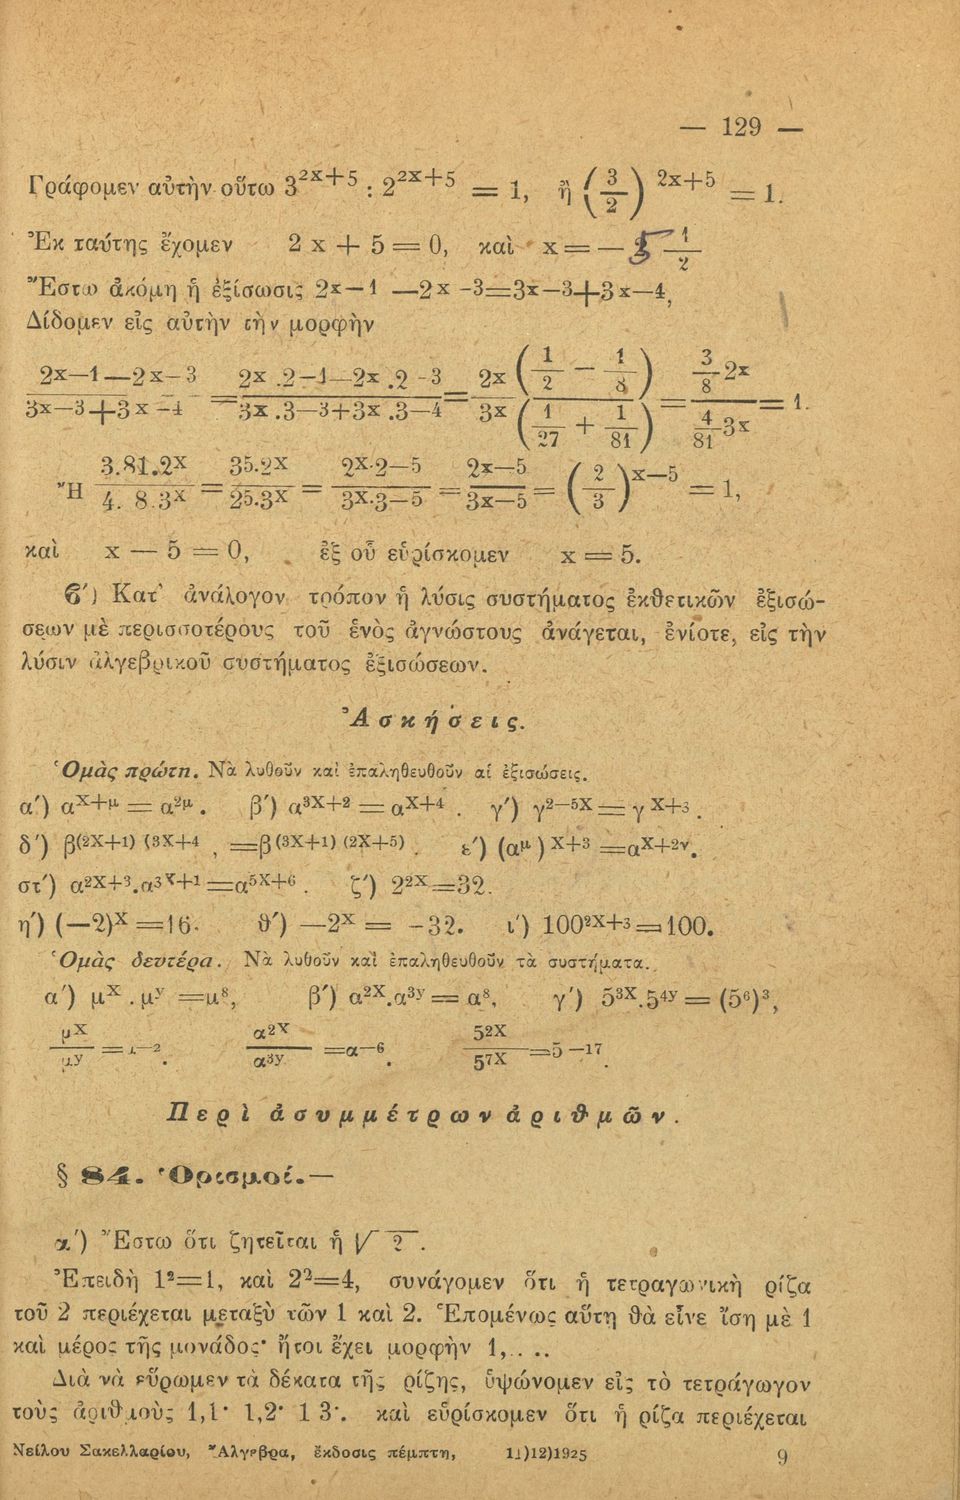 — 129 —
Γράφομεν αὐτὴν οὕτω 3²ˣ⁺⁵ : 2²ˣ⁺⁵ = 1, ἢ (3/2)²ˣ⁺⁵ = 1.
Ἐκ ταύτης ἔχομεν 2 x + 5 = 0, καὶ x = — 2 1/2
Ἔστω ἀκόμη ἡ ἐξίσωσις 2ˣ⁻¹ — 2ˣ⁻³ = 3ˣ⁻³ + 3ˣ⁻⁴,
Δίδομεν εἰς αὐτὴν τὴν μορφὴν
(2ˣ⁻¹ — 2ˣ⁻³)/(3ˣ⁻³ + 3ˣ⁻⁴) = (2ˣ.2⁻¹ — 2ˣ.2⁻³)/(3ˣ.3⁻³ + 3ˣ.3⁻⁴) = 2ˣ(1/2 — 1/8)/3ˣ(1/27 + 1/81) = (3/8 2ˣ)/(4/81 3ˣ) = 1.
Ἢ 3.81.2ˣ/4.8.3ˣ = 3⁵.2ˣ/2⁵.3ˣ = 2ˣ.2⁻⁵/3ˣ.3⁻⁵ = 2ˣ⁻⁵/3ˣ⁻⁵ = (2/3)ˣ⁻⁵ = 1,
καὶ x — 5 = 0, ἐξ οὗ εὑρίσκομεν x = 5.
6′) Κατ' ἀνάλογον τρόπον ἡ λύσις συστήματος ἐκθετικῶν ἐξισώ-
σεων μὲ περισσοτέρους τοῦ ἑνὸς ἀγνώστους ἀνάγεται, ἐνίοτε, εἰς τὴν
λύσιν ἀλγεβρικοῦ συστήματος ἐξισώσεων.
Ἀσκήσεις.
Ὁμὰς πρώτη. Νὰ λυθοῦν καὶ ἐπαληθευθοῦν αἱ ἐξισώσεις.
α′) αˣ⁺ᵘ = α²ᵘ. β′) α³ˣ⁺² = αˣ⁺⁴. γ′) γ²⁻⁵ˣ = γˣ⁺³.
δ′) β⁽²ˣ⁺¹⁾ ⁽³ˣ⁺⁴, = β⁽³ˣ⁺¹⁾ ⁽²ˣ⁺⁵⁾. ε′) (αᵘ)ˣ⁺³ = αˣ⁺²ᵛ.
στ′) α²ˣ⁺³.α³ˣ⁺¹ = α⁵ˣ⁺⁶. ζ′) 2²ˣ = 32.
η′) (—2)ˣ = 16. θ′) —2ˣ = -32. ι′) 100²ˣ⁺³ = 100.
Ὁμὰς δευτέρα. Νὰ λυθοῦν καὶ ἐπαληθευθοῦν τὰ συστήματα.
α′) μˣ.μʸ = μ⁸, β′) α²ˣ.α³ʸ = α⁸, γ′) 5³ˣ.5⁴ʸ = (5⁶)³,
μˣ/μʸ = μ⁻². α²ˣ/α³ʸ = α⁻⁶. 5²ˣ/5⁷ˣ = 5⁻¹⁷.
Περὶ ἀσυμμέτρων ἀριθμῶν.
§ 84. Ὁρισμοί.—
α′) Ἔστω ὅτι ζητεῖται ἡ √2.
Ἐπειδὴ 1² = 1, καὶ 2² = 4, συνάγομεν ὅτι ἡ τετραγωνικὴ ρίζα
τοῦ 2 περιέχεται μεταξὺ τῶν 1 καὶ 2. Ἑπομένως αὕτη θὰ εἶνε ἴση μὲ 1
καὶ μέρος τῆς μονάδος· ἤτοι ἔχει μορφὴν 1,....
Διὰ νὰ εὕρωμεν τὰ δέκατα τῆς ρίζης, ὑψώνομεν εἰς τὸ τετράγωγον
τοὺς ἀριθμοὺς 1,1· 1,2· 1 3·. καὶ εὑρίσκομεν ὅτι ἡ ρίζα περιέχεται
Νείλου Σακελλαρίου, Ἄλγεβρα, ἔκδοσις πέμπτη, 11)12)1925 9